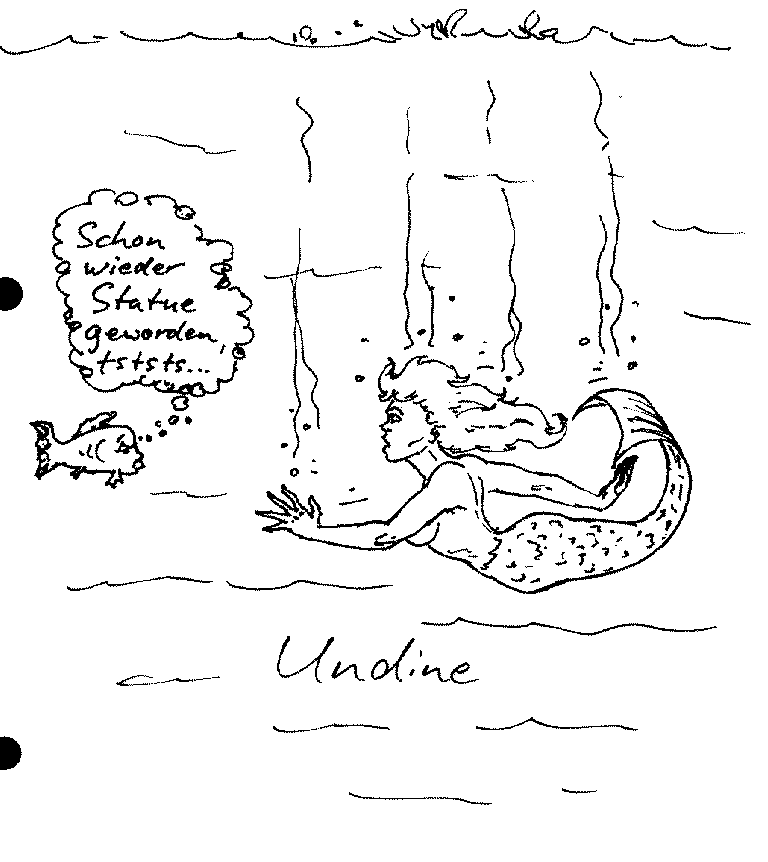 Schon
wieder
Statue
geworden,
tststs...
Undine